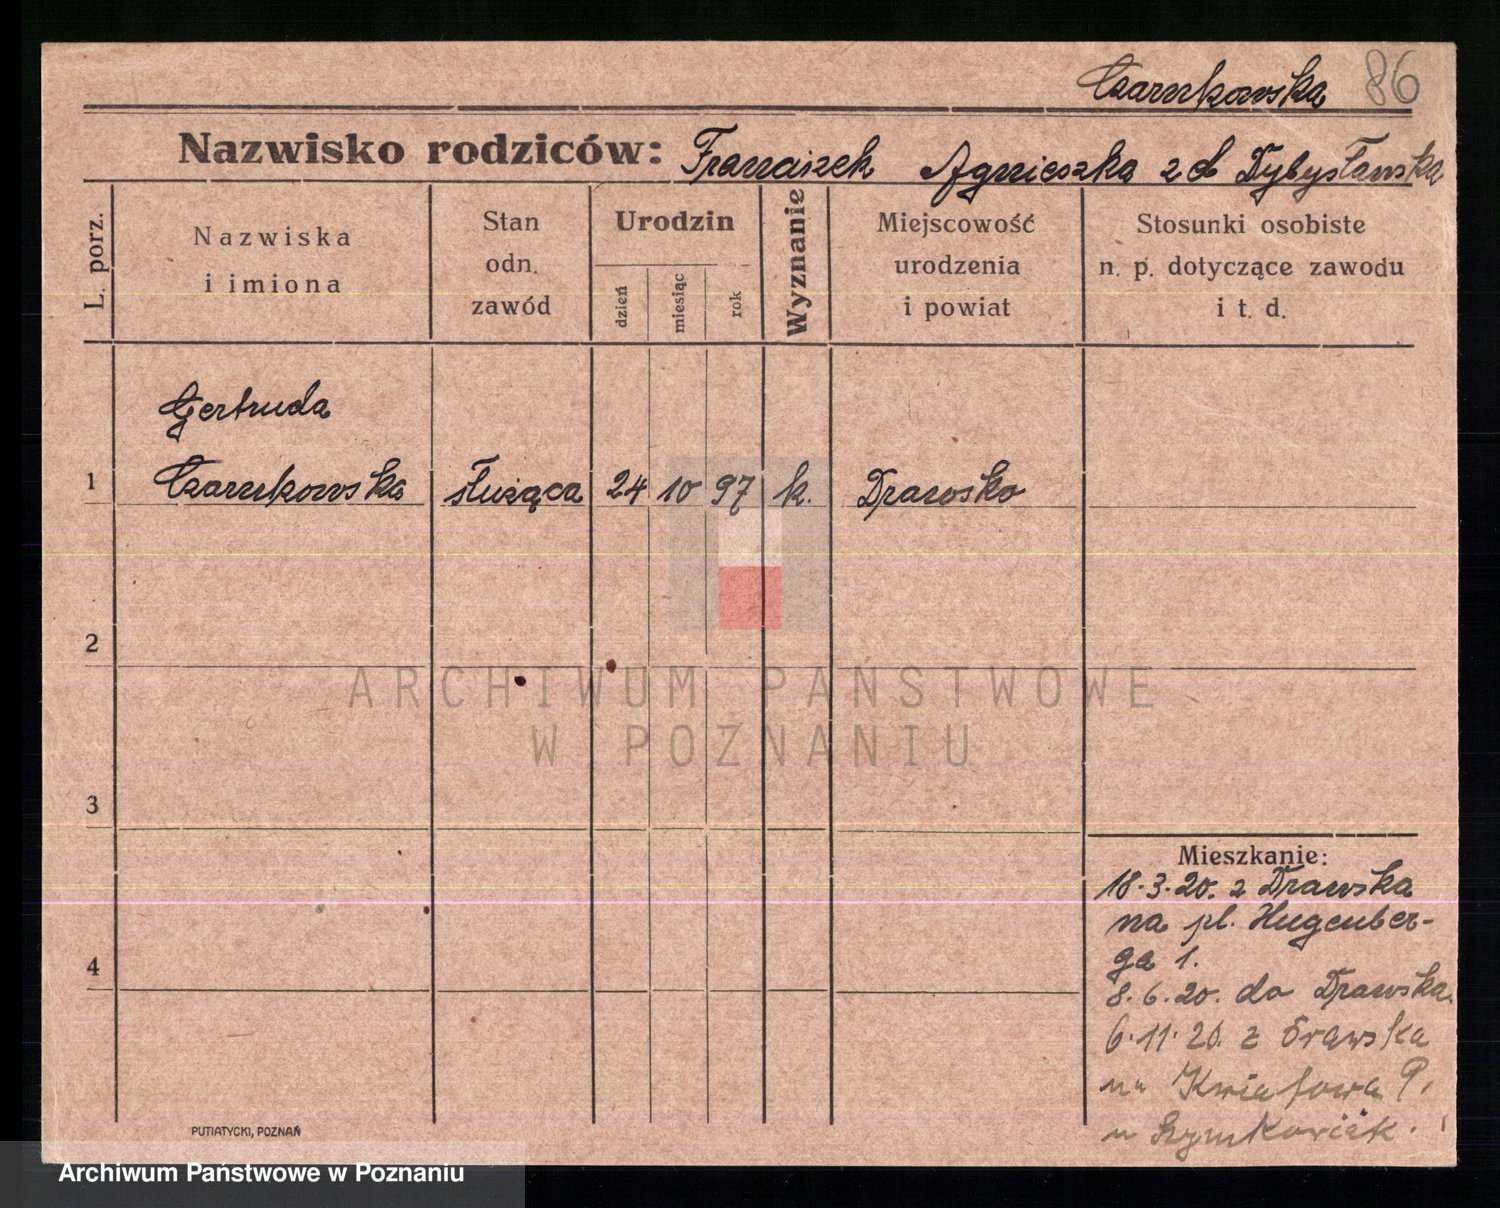 Czarnkowska 86
Nazwisko rodziców: Franciszek Agnieszka z d Dybysławska
L. porz.
Nazwiska
i imiona
Stan
odn.
zawód
Urodzin
dzień
miesiąc
rok
Wyznanie
Miejscowość
urodzenia
i powiat
Stosunki osobiste
n. p. dotyczące zawodu
i t. d.
Gertruda
1 Czarnkowska służąca 24 10 97 k. Drawsko
2
ARCHIWUM PAŃSTWOWE
W POZNANIU
3
Mieszkanie:
18.3.20. z Drawska
na pl. Hugenber-
ga 1.
4
8.6.20. do Drawska.
6.11.20. z Drawska
na Kwiatowa 9.
u Szymkowiak.
PUTIATYCKI, POZNAŃ
Archiwum Państwowe w Poznaniu